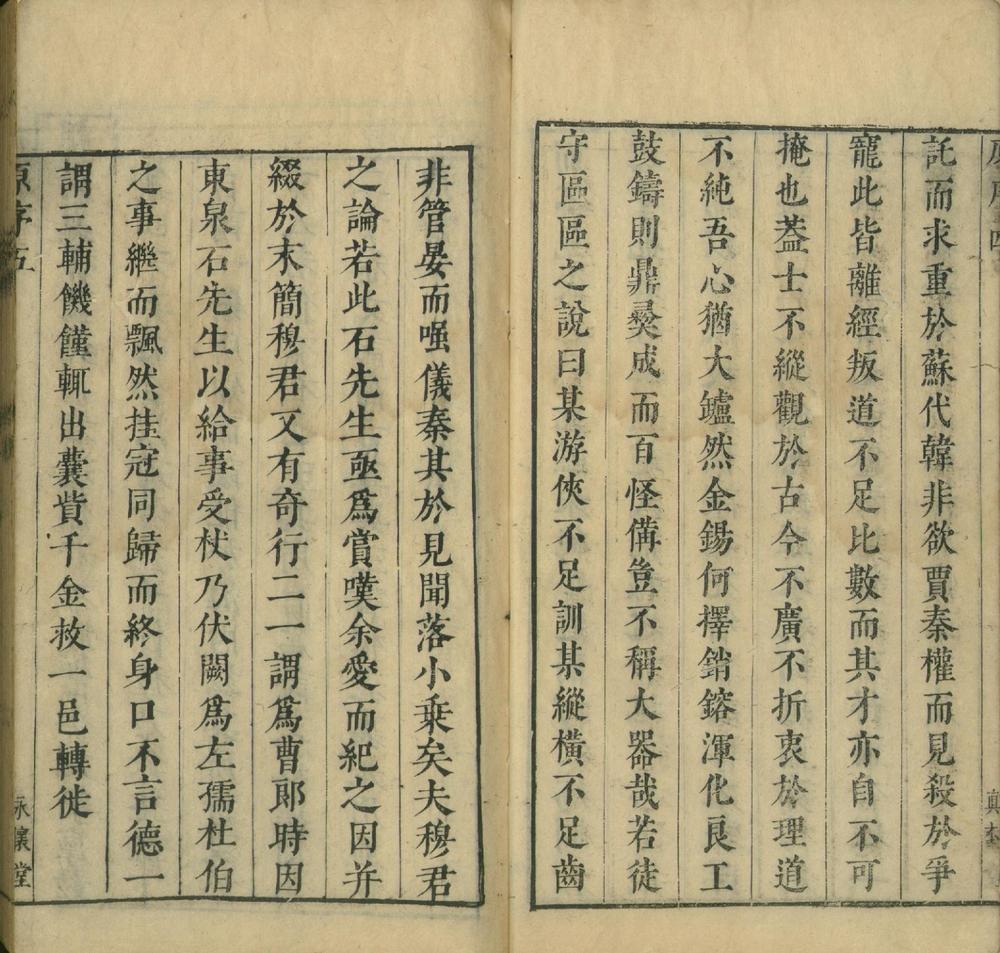 託而求重於蘇代韓非欲賈秦權而見殺於爭
寵此皆離經叛道不足比數而其才亦自不可
掩也葢士不縱觀於古今不廣不折衷於理道
不純吾心猶大鑪然金錫何擇銷鎔渾化良工
鼓鑄則鼎彞成而百怪備豈不稱大器哉若徒
守區區之說曰某游俠不足訓某縱橫不足齒
非管晏而嗤儀秦其於見聞落小乗矣夫穆君
之論若此石先生亟爲賞嘆余愛而紀之因并
綴於末簡穆君又有奇行二一謂爲曹郎時因
東泉石先生以給事受杖乃伏闕爲左孺杜伯
之事繼而飄然挂冠同歸而終身口不言德一
謂三輔饑饉輒出囊貲千金救一邑轉徙
原序五
詠懷堂